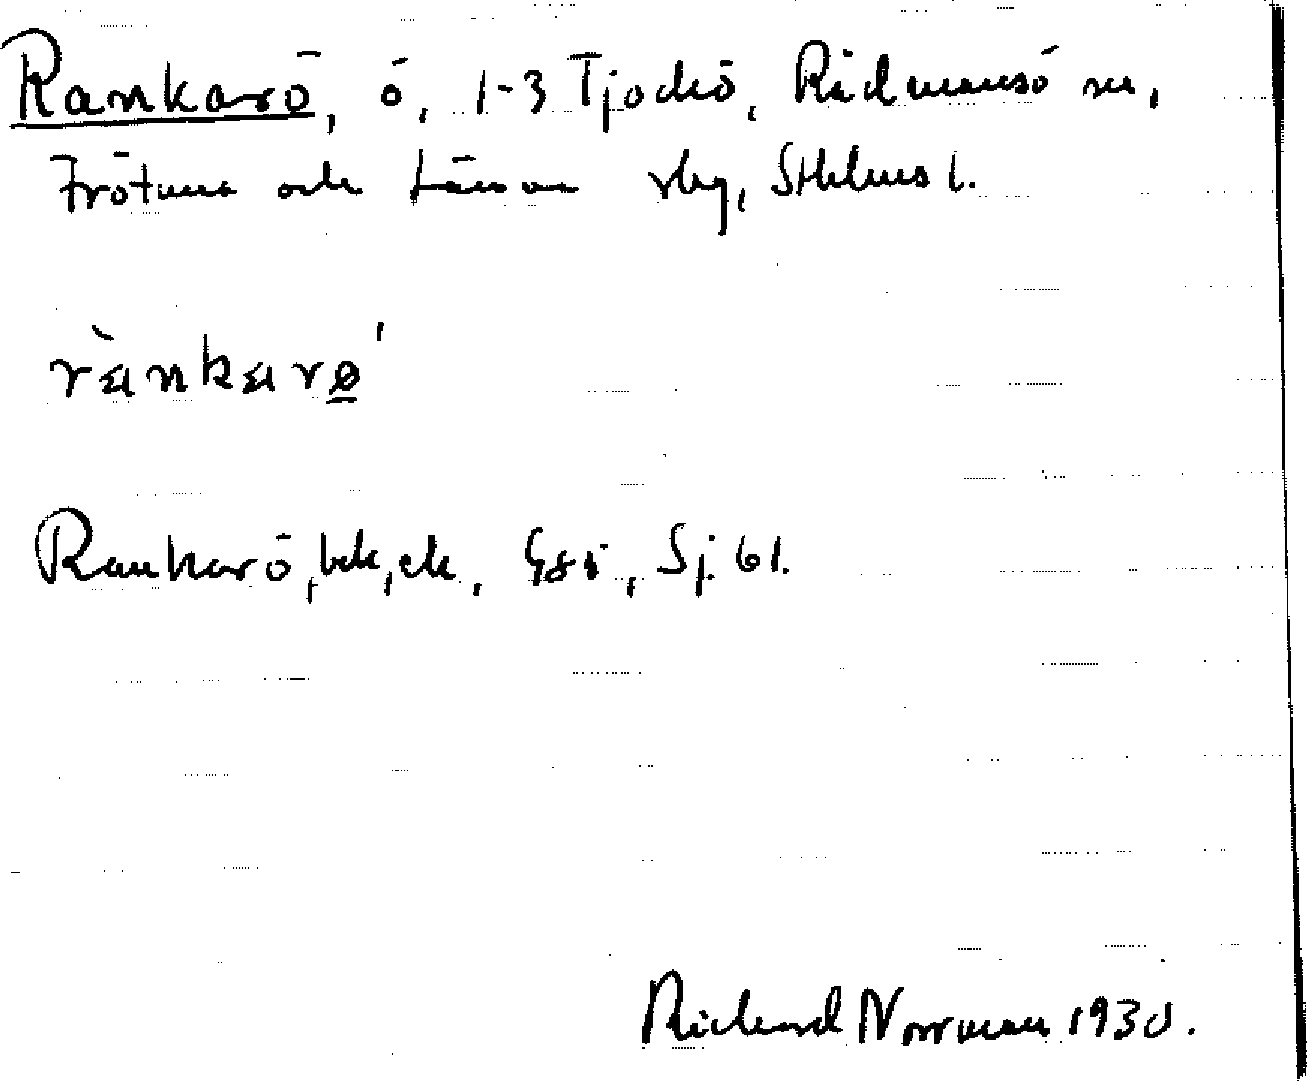 Rankarö, ö, 1-3 Tjockö, Rådmansö sn,
Frötuna och Länna slg, Sthlms l.
rànkarø'
Rankarö, bek, ek, Gsö, Sj. 61.
Rickard Norrman 1930.